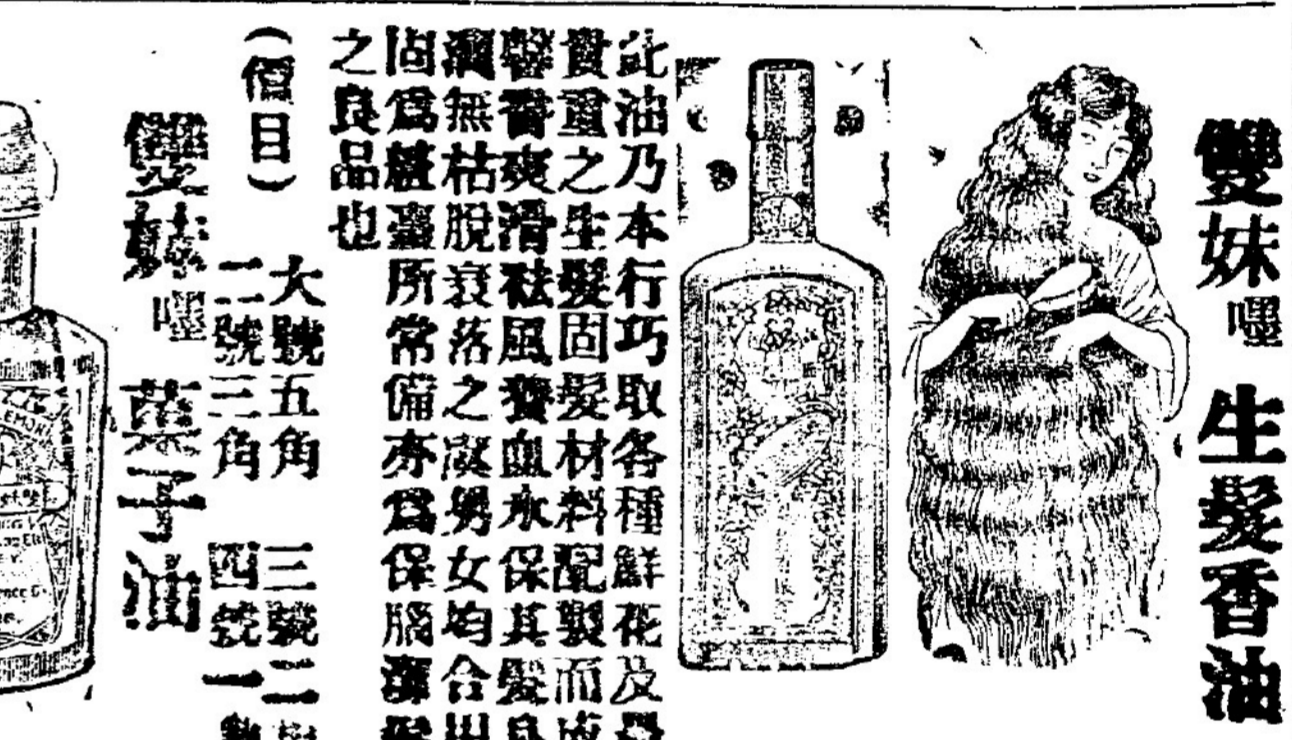 雙妹嚜 生髮香油
此油乃本行巧取各種鮮花及最
貴重之生髮固髮材料配製而成
馨香爽滑祛風養血永保其髮良
潤無枯脫衰落之虞男女均合用
固爲粧臺所常備亦爲保腦澤髮
之良品也
(價目)
大號五角 三號二
二號三角 四號一
雙妹嚜 菓子油